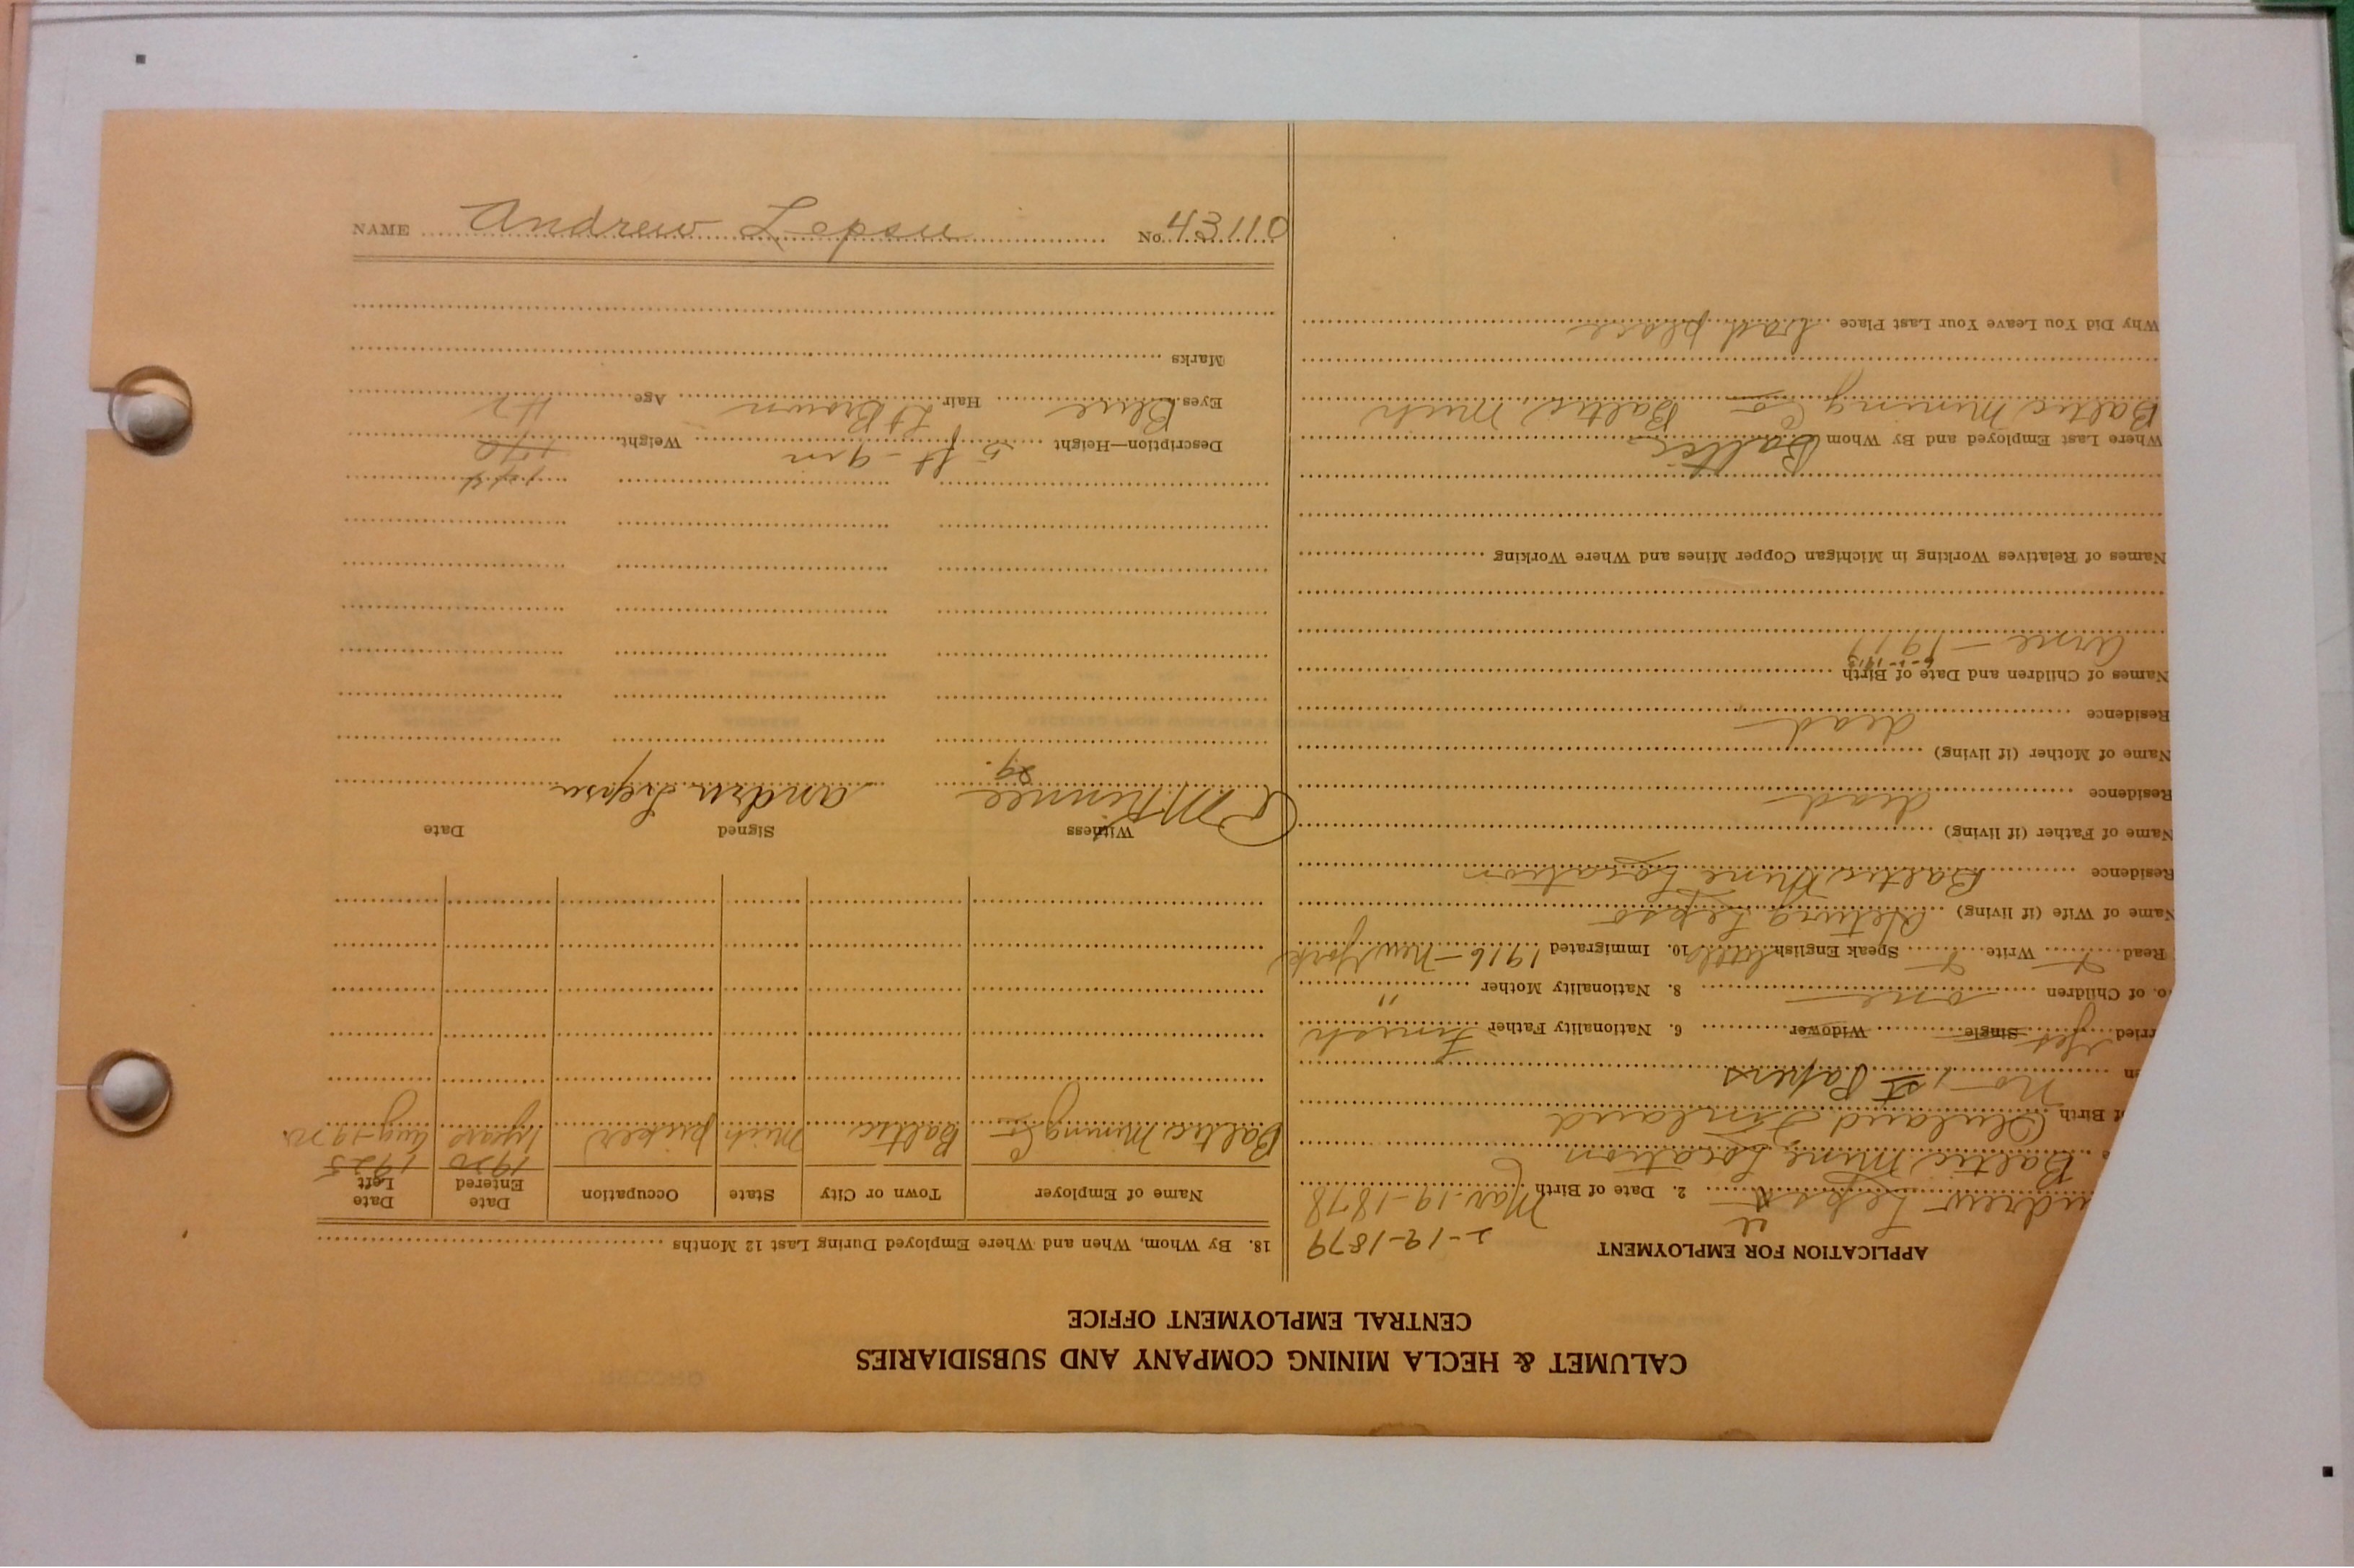 NAME Andrew Lepsu No. 43110
CALUMET & HECLA MINING COMPANY AND SUBSIDIARIES
CENTRAL EMPLOYMENT OFFICE
APPLICATION FOR EMPLOYMENT
2-19-1879
ndrew Lepsu 2. Date of Birth Mar-19-1878
e Baltic Mine Location
of Birth Finland
en No - 1st Papers
rried Yes Single Widower 6. Nationality Father Finish
o. of Children one 8. Nationality Mother "
Read Write Speak English little 10. Immigrated 1916 - New York
Name of Wife (if living) Lepso
Residence Baltic Mine Location
Name of Father (if living)
Residence dead
Name of Mother (if living)
Residence dead
Names of Children and Date of Birth 6-1-1913
Arne - 1917
Names of Relatives Working in Michigan Copper Mines and Where Working
Where Last Employed and By Whom Baltic
Baltic Mining Co Baltic, Mich
Why Did You Leave Your Last Place bad place
18. By Whom, When and Where Employed During Last 12 Months
Name of Employer Town or City State Occupation Date Entered Date Left
1920 1925
Baltic Mining Co Baltic Mich picker 1 year Aug-1920
Witness Signed Date
Andru Lepsu
144
Description—Height 5 ft - 9 in Weight 170
Eyes Blue Hair Lt Brown Age 42
Marks